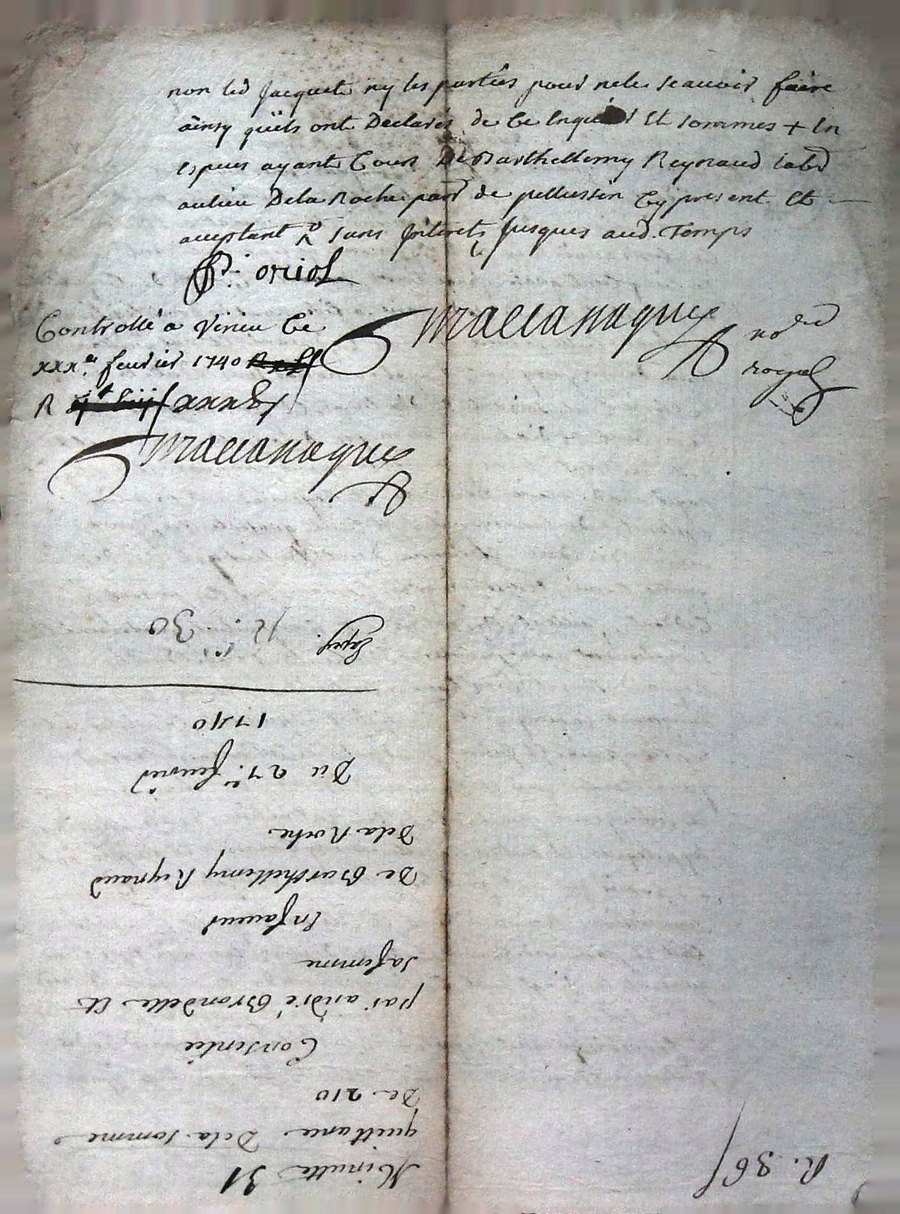 non led Jacquet ny les parties pour ne le scavoir faire
ainsy quils ont Declarés de Ce Enquis Et sommes + En
Espuis ayant Cour De Barthellemy Reynaud lab.r
au lieu De la Roche par.se de pellussin Cy present Et
acceptant sans Interets Jusques aud. Temps
P. oriol
Controllé a Virieu Ce
xxx.e fevrier 1740
R xxxs
Maccanaques
no.re
royal
Maccanaques
Expy.
12 s. 30
Minutte 31
quittance De la somme
De 210
Consentie
par andré Brondelle Et
sa femme
En faveur
De Barthellemy Reynaud
De la Roche
Du 27.e fevrier
1740
R. 36 s